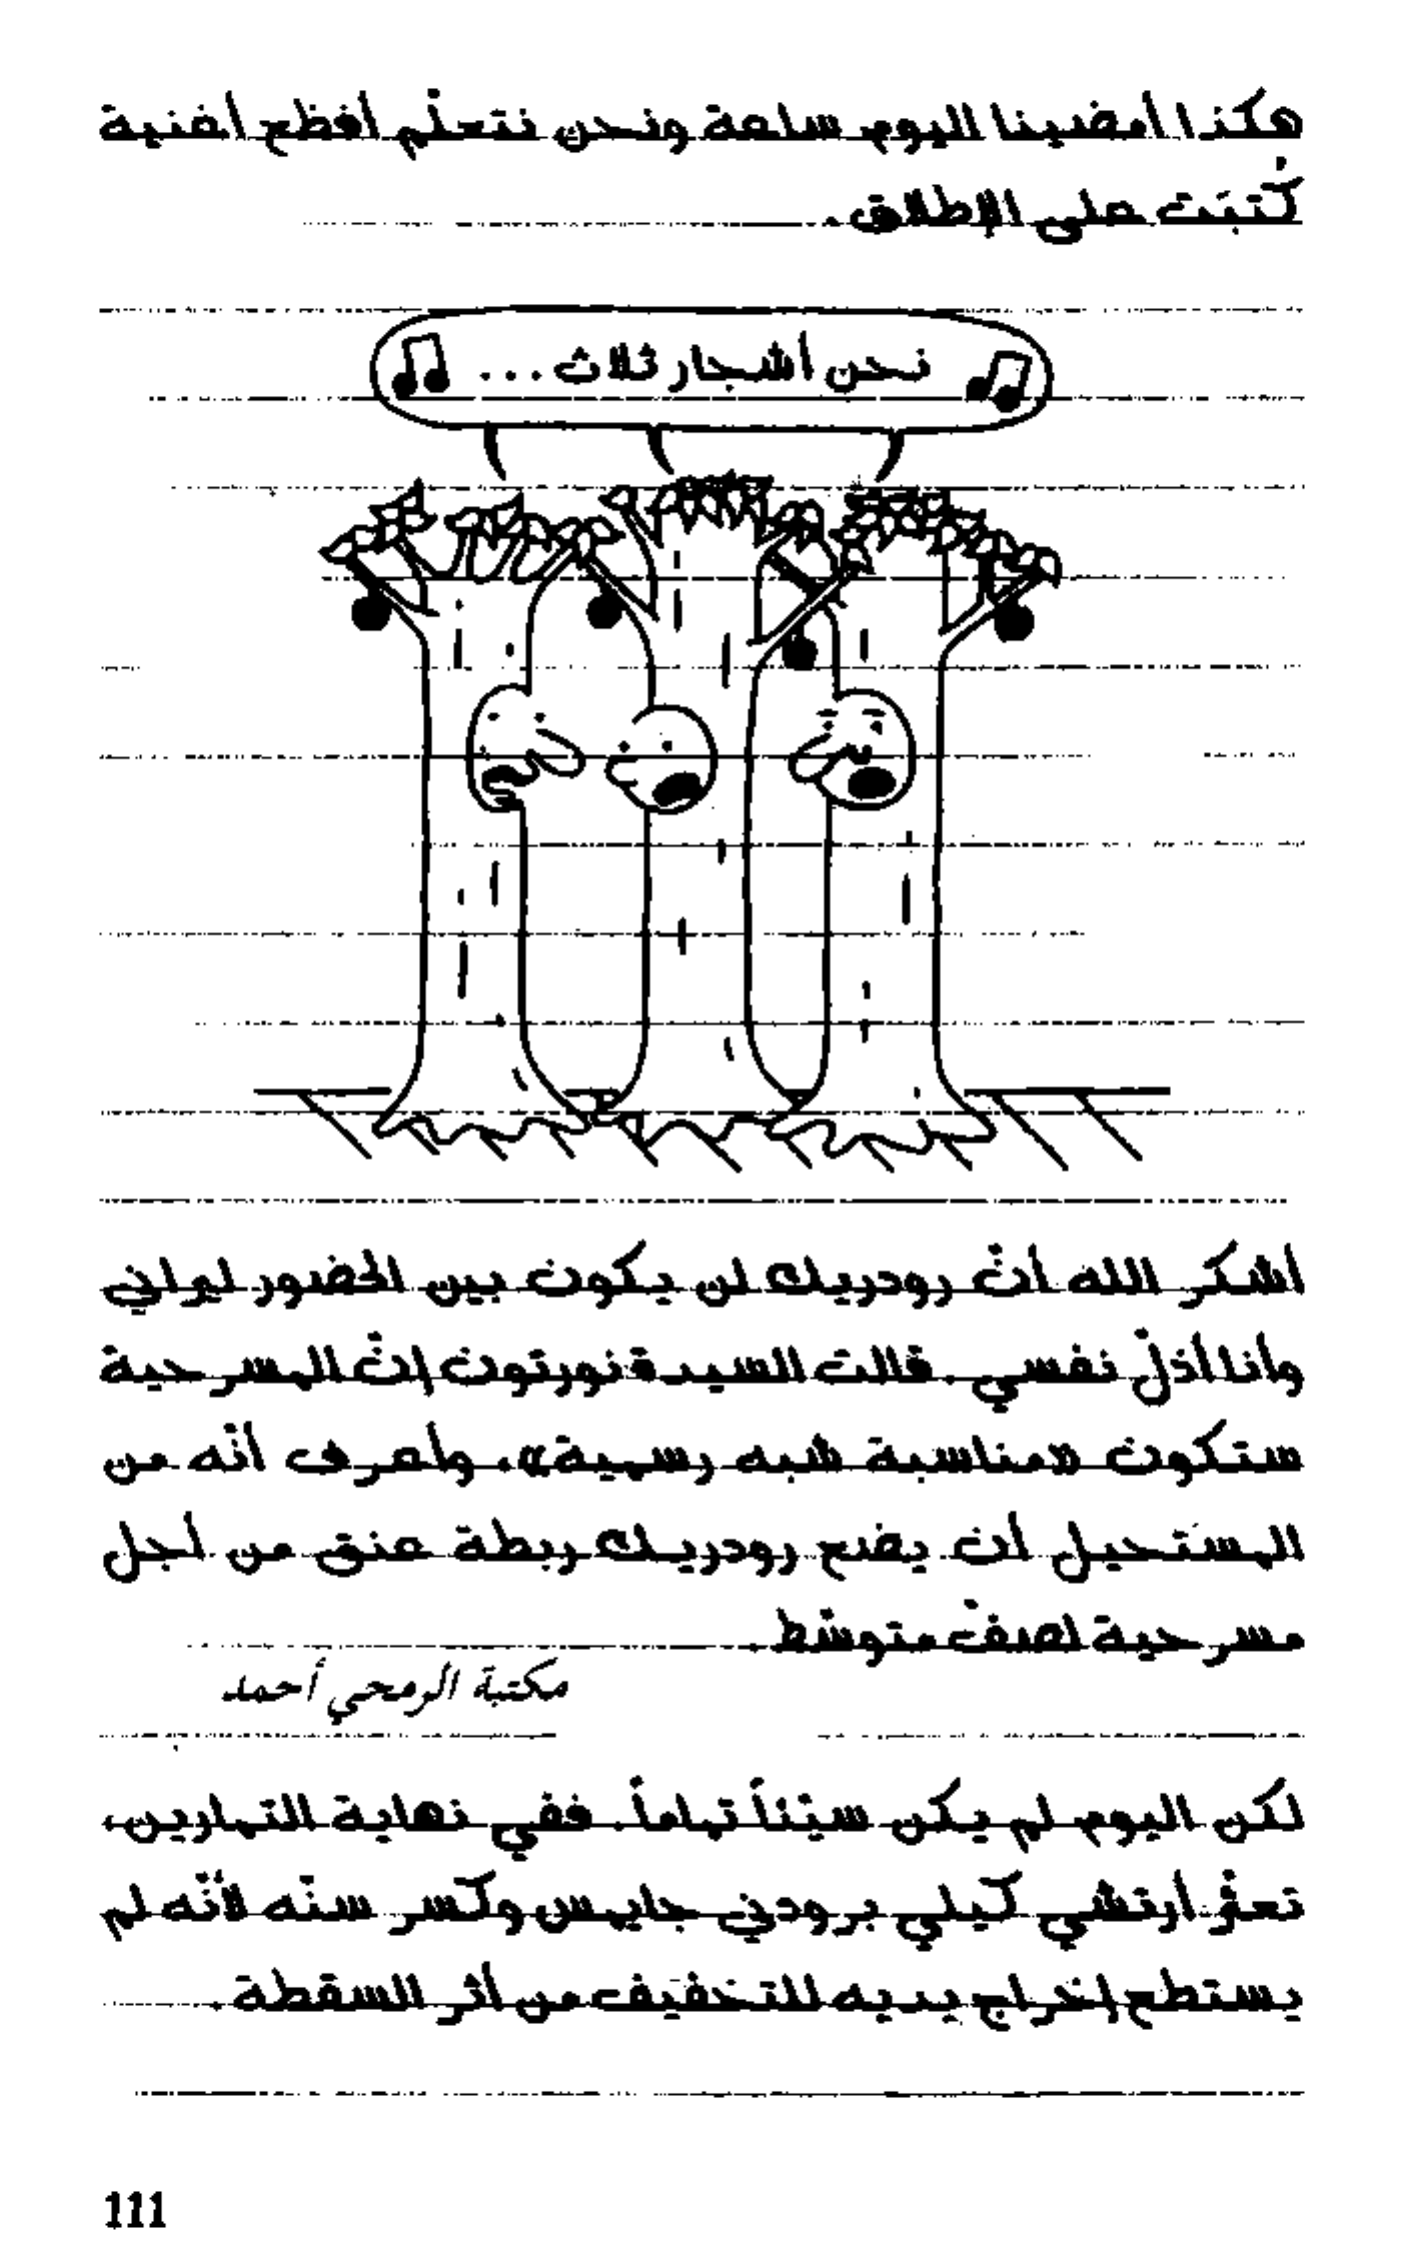 هكذا أمضينا اليوم ساعة ونحن نتعلّم أفظع أغنية
كُتبَت على الإطلاق.
نحن أشجار ثلاث...
أشكر الله أنّ رودريك لن يكون بين الحضور ليراني
وأنا أذلّ نفسي. قالت السيدة نورتون إنّ المسرحية
ستكون «مناسبة شبه رسمية»، وأعرف أنّه من
المستَحيل أن يضع رودريك ربطة عنق من أجل
مسرحية لصفّ متوسّط.
مكتبة الرمحي أحمد
لكن اليوم لم يكن سيّئاً تماماً. ففي نهاية التمارين،
تعثّر آرتشي كيلي برودني جايمس وكسر سنّه لأنّه لم
يستطع إخراج يديه للتخفيف من أثر السقطة.
111